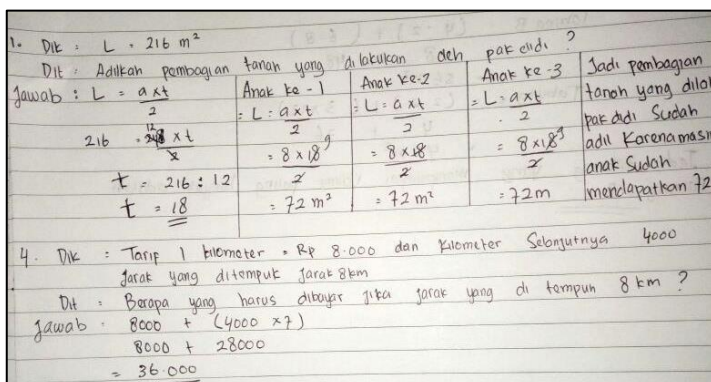 1. Dik : L = 216 m²
Dit : Adilkah pembagian tanah yang dilakukan oleh pak didi ?
Jawab : L = a x t / 2
216 = 24 12 x t / 2
t = 216 : 12
t = 18
Anak ke - 1
= L = a x t / 2
= 8 x 18 9 / 2
= 72 m²
Anak ke-2
= L = a x t / 2
= 8 x 18 / 2
= 72 m²
Anak ke - 3
= L = a x t / 2
= 8 x 18 9 / 2
= 72 m
Jadi pembagian
tanah yang dilak
pak didi sudah
adil karena masin
anak sudah
mendapatkan 72
4. Dik : Tarif 1 kilometer = Rp 8.000 dan kilometer selanjutnya 4000
Jarak yang ditempuk jarak 8km
Dit : Berapa yang harus dibayar jika jarak yang di tempuh 8 km ?
Jawab : 8000 + (4000 x 7)
8000 + 28000
= 36.000